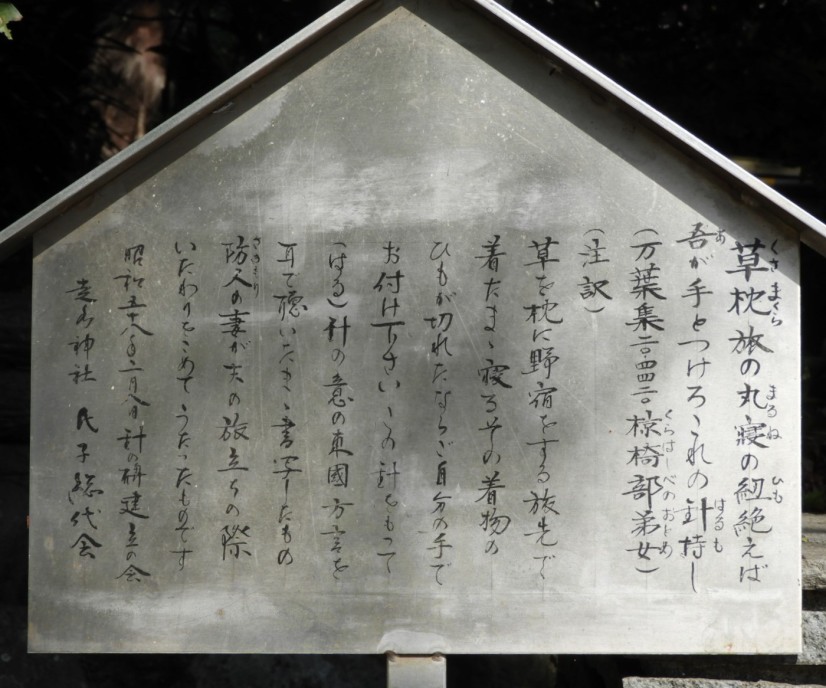 草枕旅の丸寝の紐絶えば
吾が手とつけろこれの針持し
(万葉集二〇四四二〇椋椅部弟女)
(注訳)
草を枕に野宿をする旅先で
着たまゝ寝るその着物の
ひもが切れたならご自分の手で
お付け下さいこの針をもって
(はる)針の意の東國方言を
耳で聴いたまゝ書写したもの
防人の妻が夫の旅立ちの際
いたわりをこめてうたったものです
昭和五十八年二月八日針の碑建立の会
神社 氏子総代会